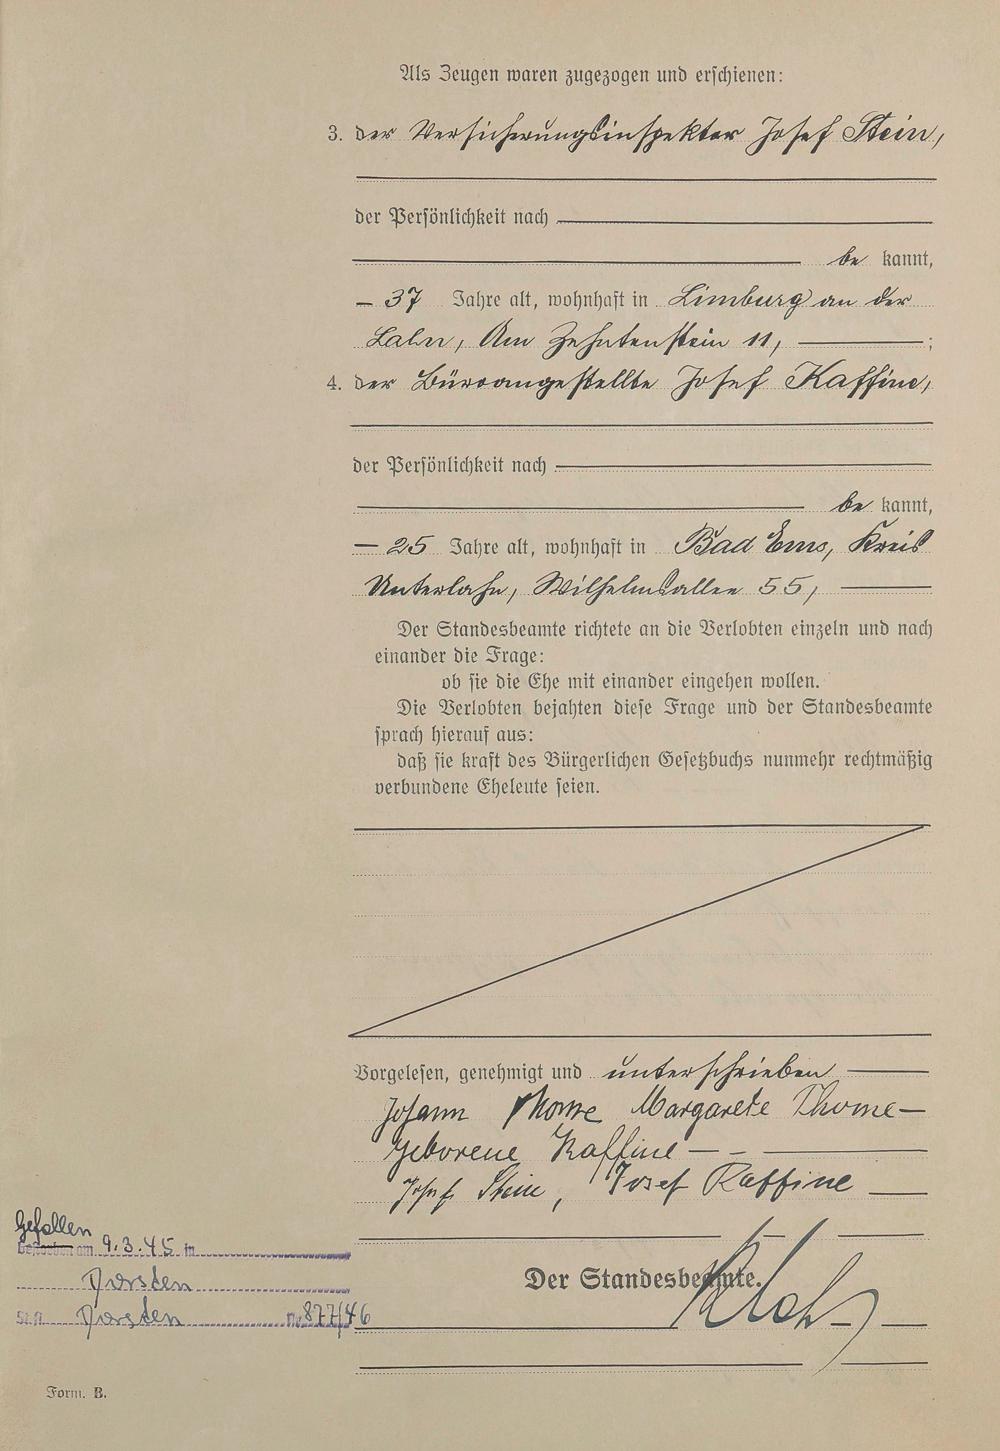 Als Zeugen waren zugezogen und erschienen:
3. der Versicherungsinspektor Josef Stein,
der Persönlichkeit nach
be kannt,
37 Jahre alt, wohnhaft in Limburg an der
Lahn, Am Zehntenstein 11, ;
4. der Büroangestellte Josef Kaffine,
der Persönlichkeit nach
be kannt,
25 Jahre alt, wohnhaft in Bad Ems, Kreis
Unterlahn, Wilhelmsallee 55,
Der Standesbeamte richtete an die Verlobten einzeln und nach
einander die Frage:
ob sie die Ehe mit einander eingehen wollen.
Die Verlobten bejahten diese Frage und der Standesbeamte
sprach hierauf aus:
daß sie kraft des Bürgerlichen Gesetzbuchs nunmehr rechtmäßig
verbundene Eheleute seien.
Vorgelesen, genehmigt und unterschrieben
Johann Thome Margarete Thome
geborene Kaffine
Josef Stein, Josef Kaffine
Der Standesbeamte.
Gefallen
Gestorben am 9.3.45 in
Dorsten
St.A. Dorsten Nr. 877/46
Form. B.